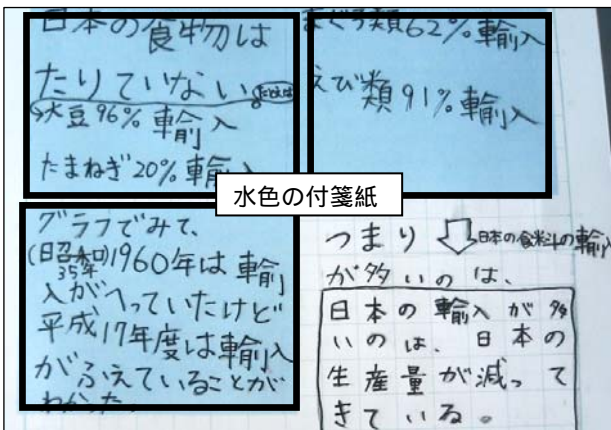 日本の食物は
たりていない。たとえば
→大豆96%輸入
たまねぎ20%輸入
まぐろ類62%輸入
えび類91%輸入
水色の付箋紙
グラフでみて、
(日召和35年)1960年は輸
入がへっていたけど
平成17年度は輸入
がふえていることが
わかった。
つまり 日本の食料の輸入
が多いのは、
日本の輸入が多
いのは、日本の
生産量が減って
きている。